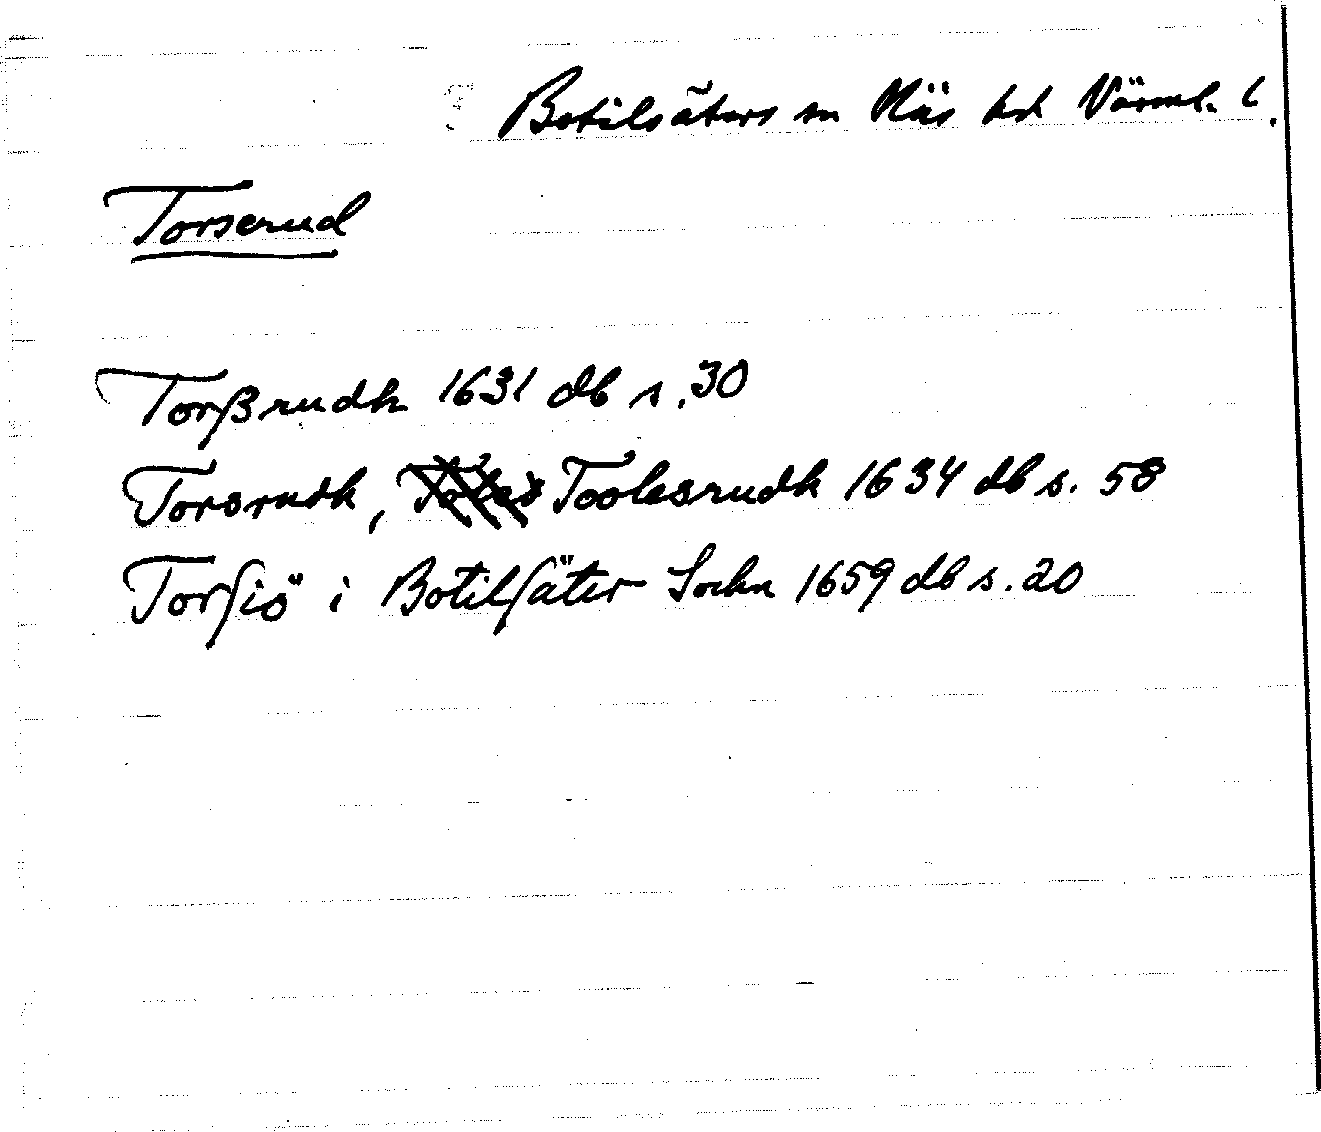 Botilsäters sn Näs hd Värml. l.
Torserud
Torßrudh 1631 db s. 30
Torsrudh, Toolesrudh 1634 db s. 58
Torsiö i Botilsäter Sochn 1659 db s. 20